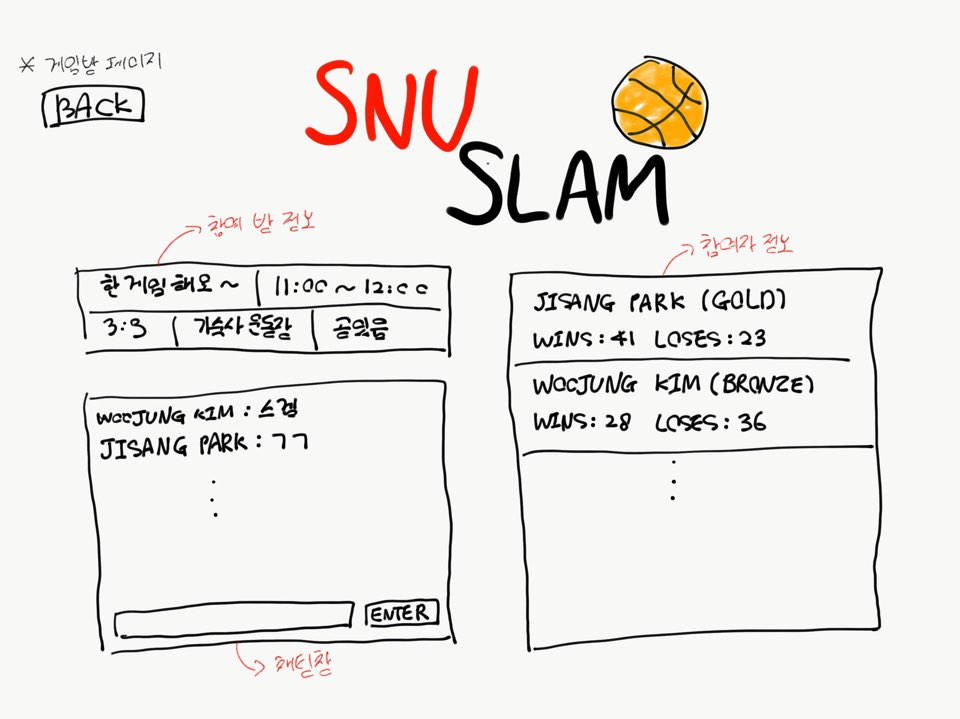 * 게임방 페이지
BACK
SNU
SLAM
참여 방 정보
한 게임 해요 ~ 11:00 ~ 12:00
3:3 기숙사 운동장 공있음
WOOJUNG KIM : 스겜
JISANG PARK : ㄱㄱ
ENTER
채팅창
참여자 정보
JISANG PARK (GOLD)
WINS : 41 LOSES : 23
WOOJUNG KIM (BRONZE)
WINS : 28 LOSES : 36